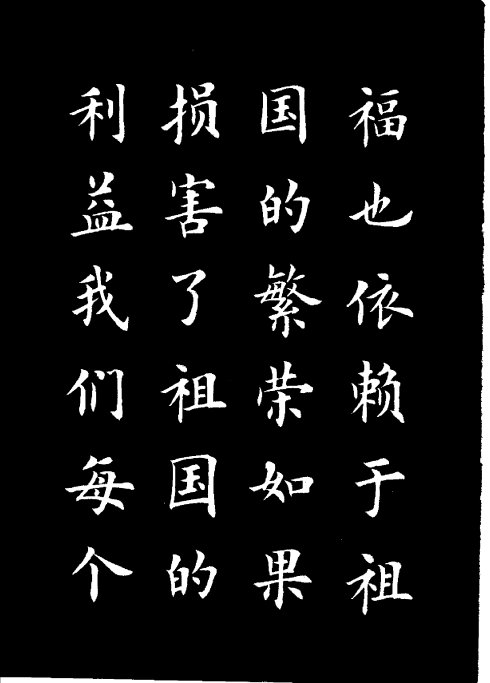 福也依赖于祖
国的繁荣如果
损害了祖国的
利益我们每个